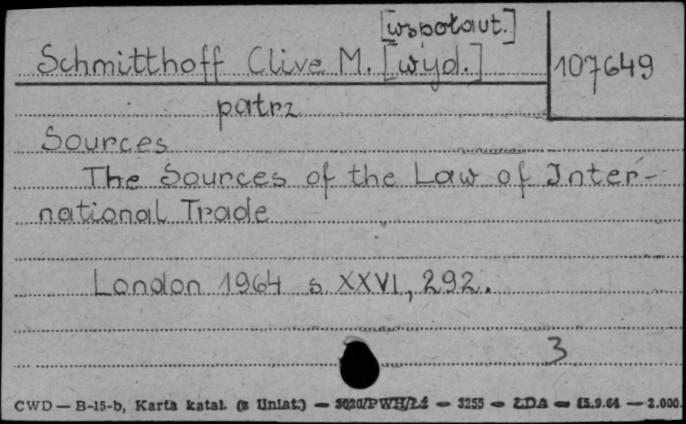 [współaut.]
Schmitthoff Clive M. [wyd.]
107649
patrz
Sources
The Sources of the Law of Inter-
national Trade
London 1964 s XXVI, 292.
3
CWD — B-15-b, Karta katal. (z Uniat.) — 3020/PWH/Łź — 3255 — ŁDA — 15.9.64 — 2.000.